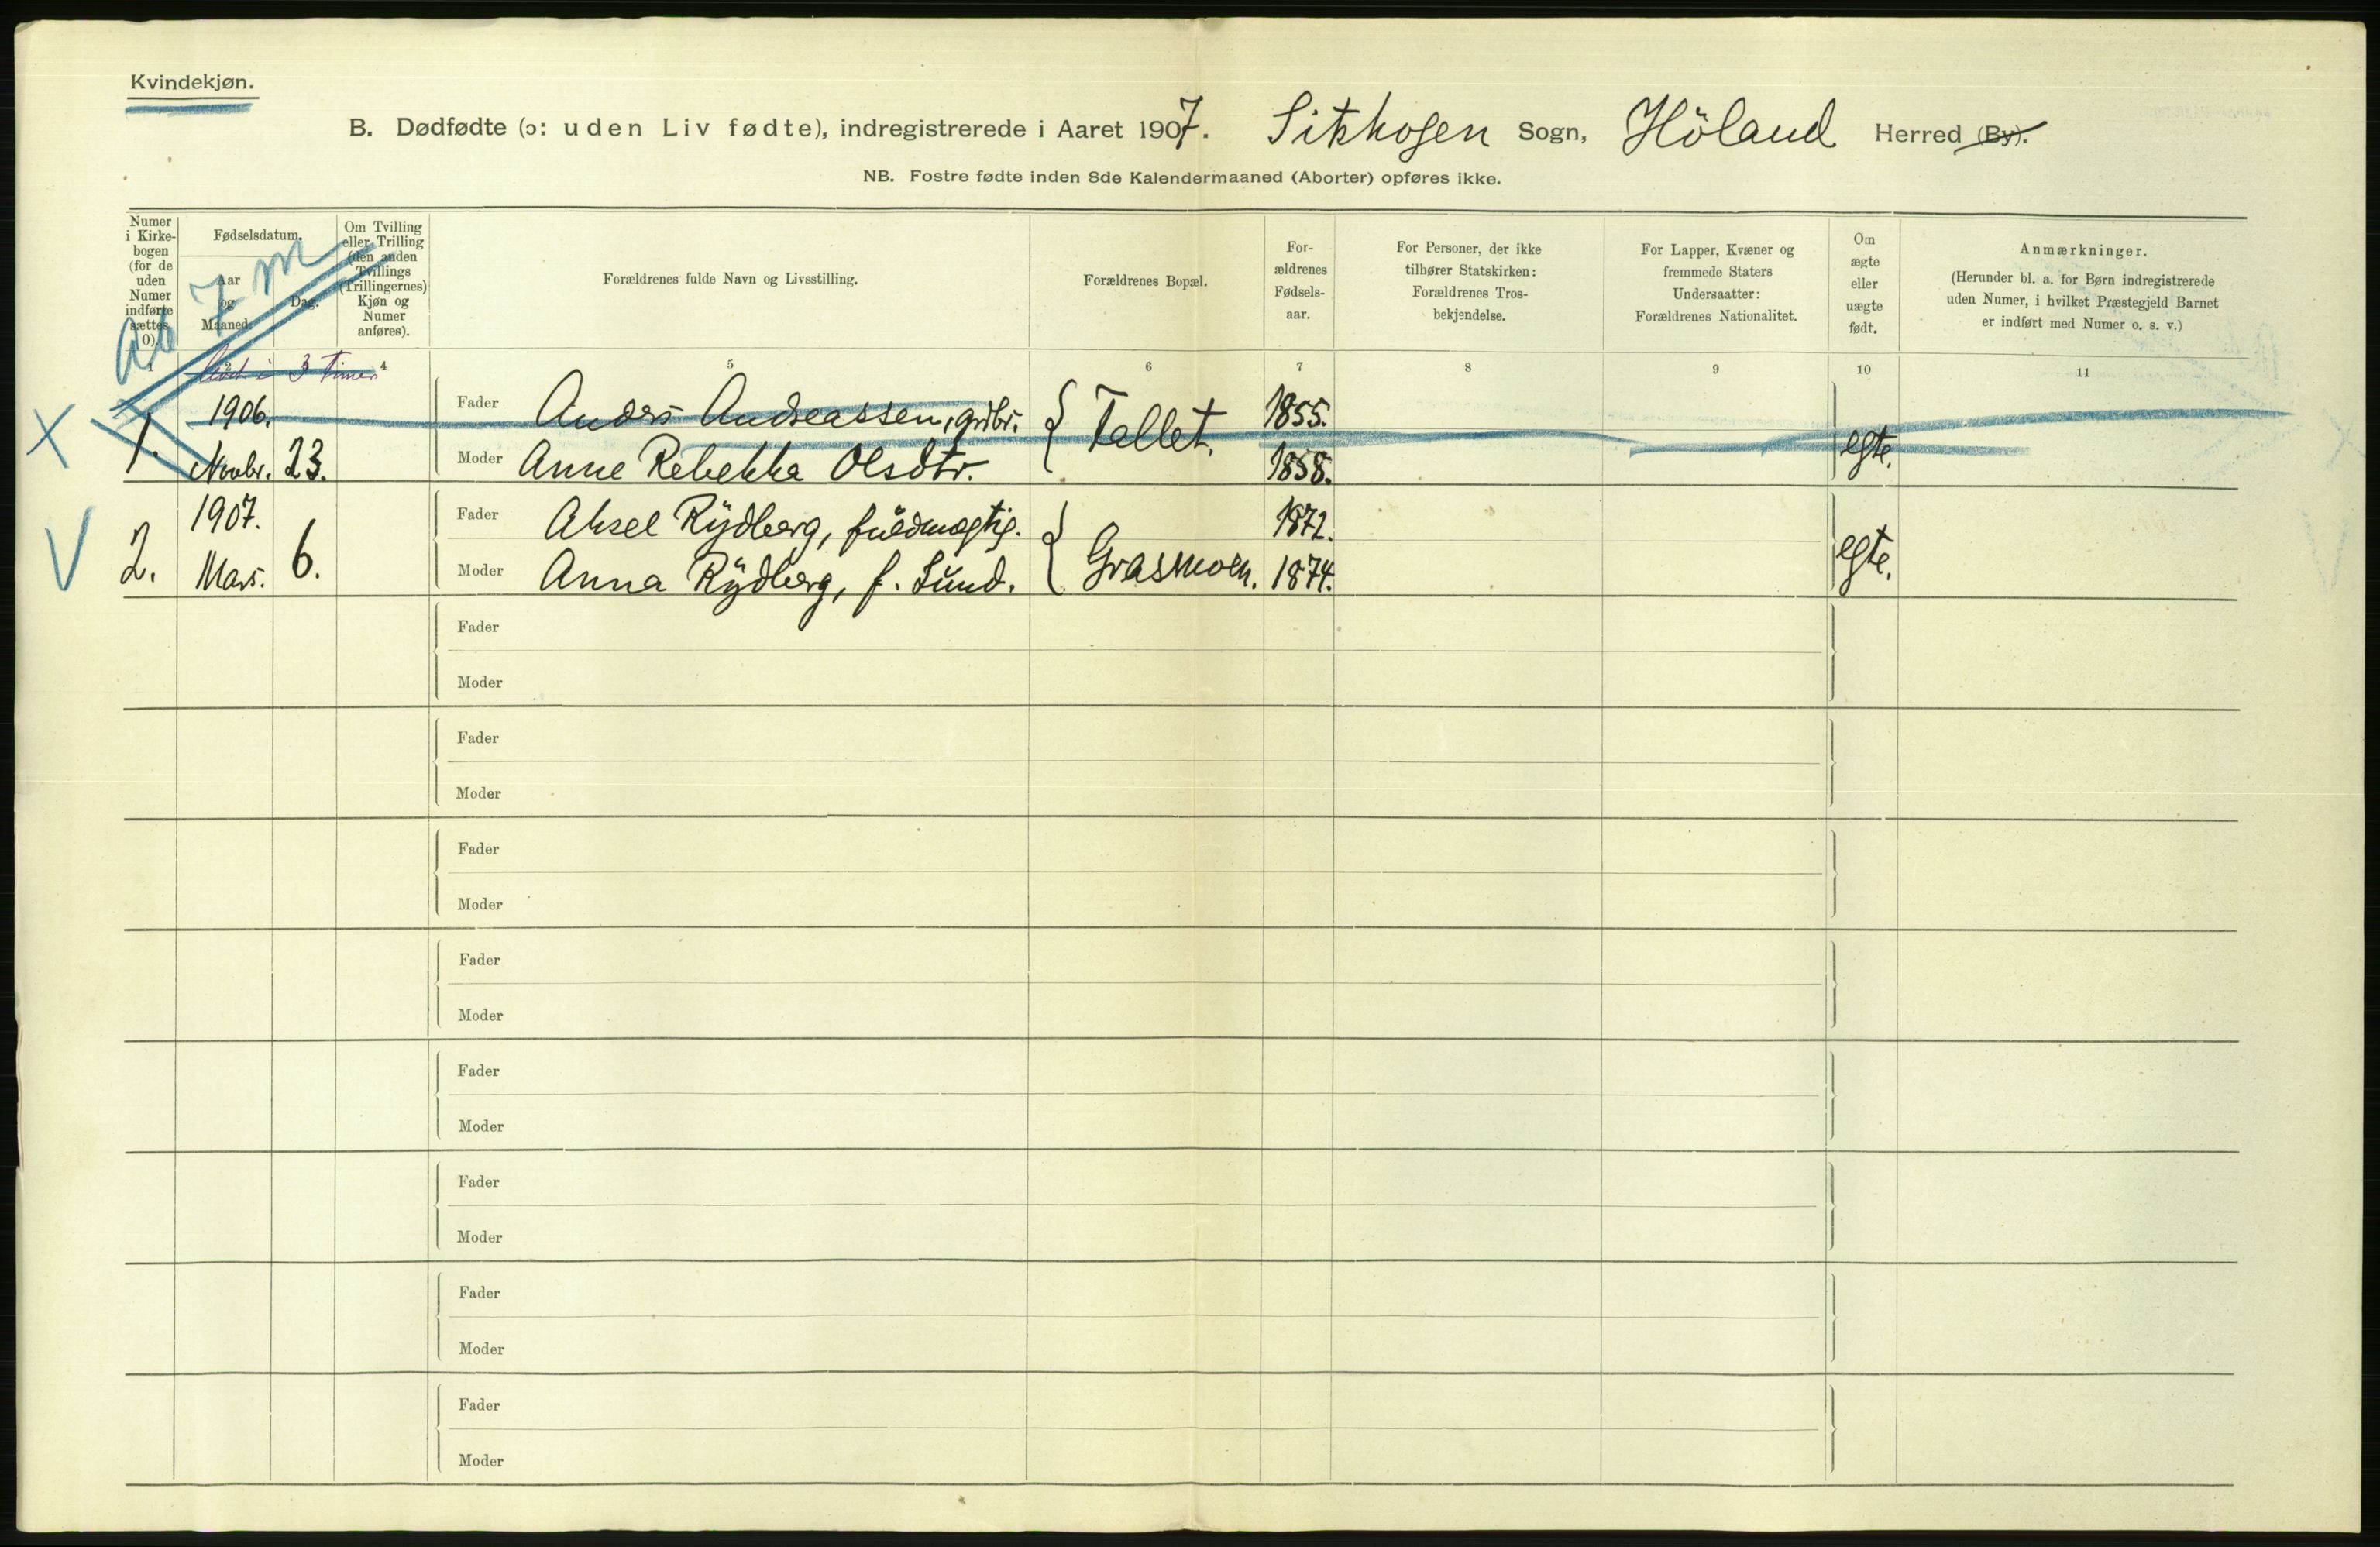 Kvindekjøn.
B. Dødfødte (ɔ: uden Liv fødte), indregistrerede i Aaret 1907. Sitskogen Sogn, Höland Herred (By).
NB. Fostre fødte inden 8de Kalendermaaned (Aborter) opføres ikke.
Numer i Kirke-bogen (for de uden Numer indførte sættes 0).
Fødselsdatum.
Aar og Maaned.
Dag.
Om Tvilling eller Trilling (den anden Tvillings (Trillingernes) Kjøn og Numer anføres).
Forældrenes fulde Navn og Livsstilling.
Forældrenes Bopæl.
For-ældrenes Fødsels-aar.
For Personer, der ikke tilhører Statskirken: Forældrenes Tros-bekjendelse.
For Lapper, Kvæner og fremmede Staters Undersaatter: Forældrenes Nationalitet.
Om ægte eller uægte født.
Anmærkninger.
(Herunder bl. a. for Børn indregistrerede uden Numer, i hvilket Præstegjeld Barnet er indført med Numer o. s. v.)
Ab 7 m
3 Timer
1 2 3 4 5 6 7 8 9 10 11
X 1. 1906. Novbr. 23. Fader Anders Andreassen, grdbr. Tallet. 1855. egte.
Moder Anne Rebekka Olsdtr. 1858.
V 2. 1907. Mars. 6. Fader Aksel Rydberg, fuldmægtig. Grasmoen. 1872. egte.
Moder Anna Rydberg, f. Lund. 1874.
Fader
Moder
Fader
Moder
Fader
Moder
Fader
Moder
Fader
Moder
Fader
Moder
Fader
Moder
Fader
Moder